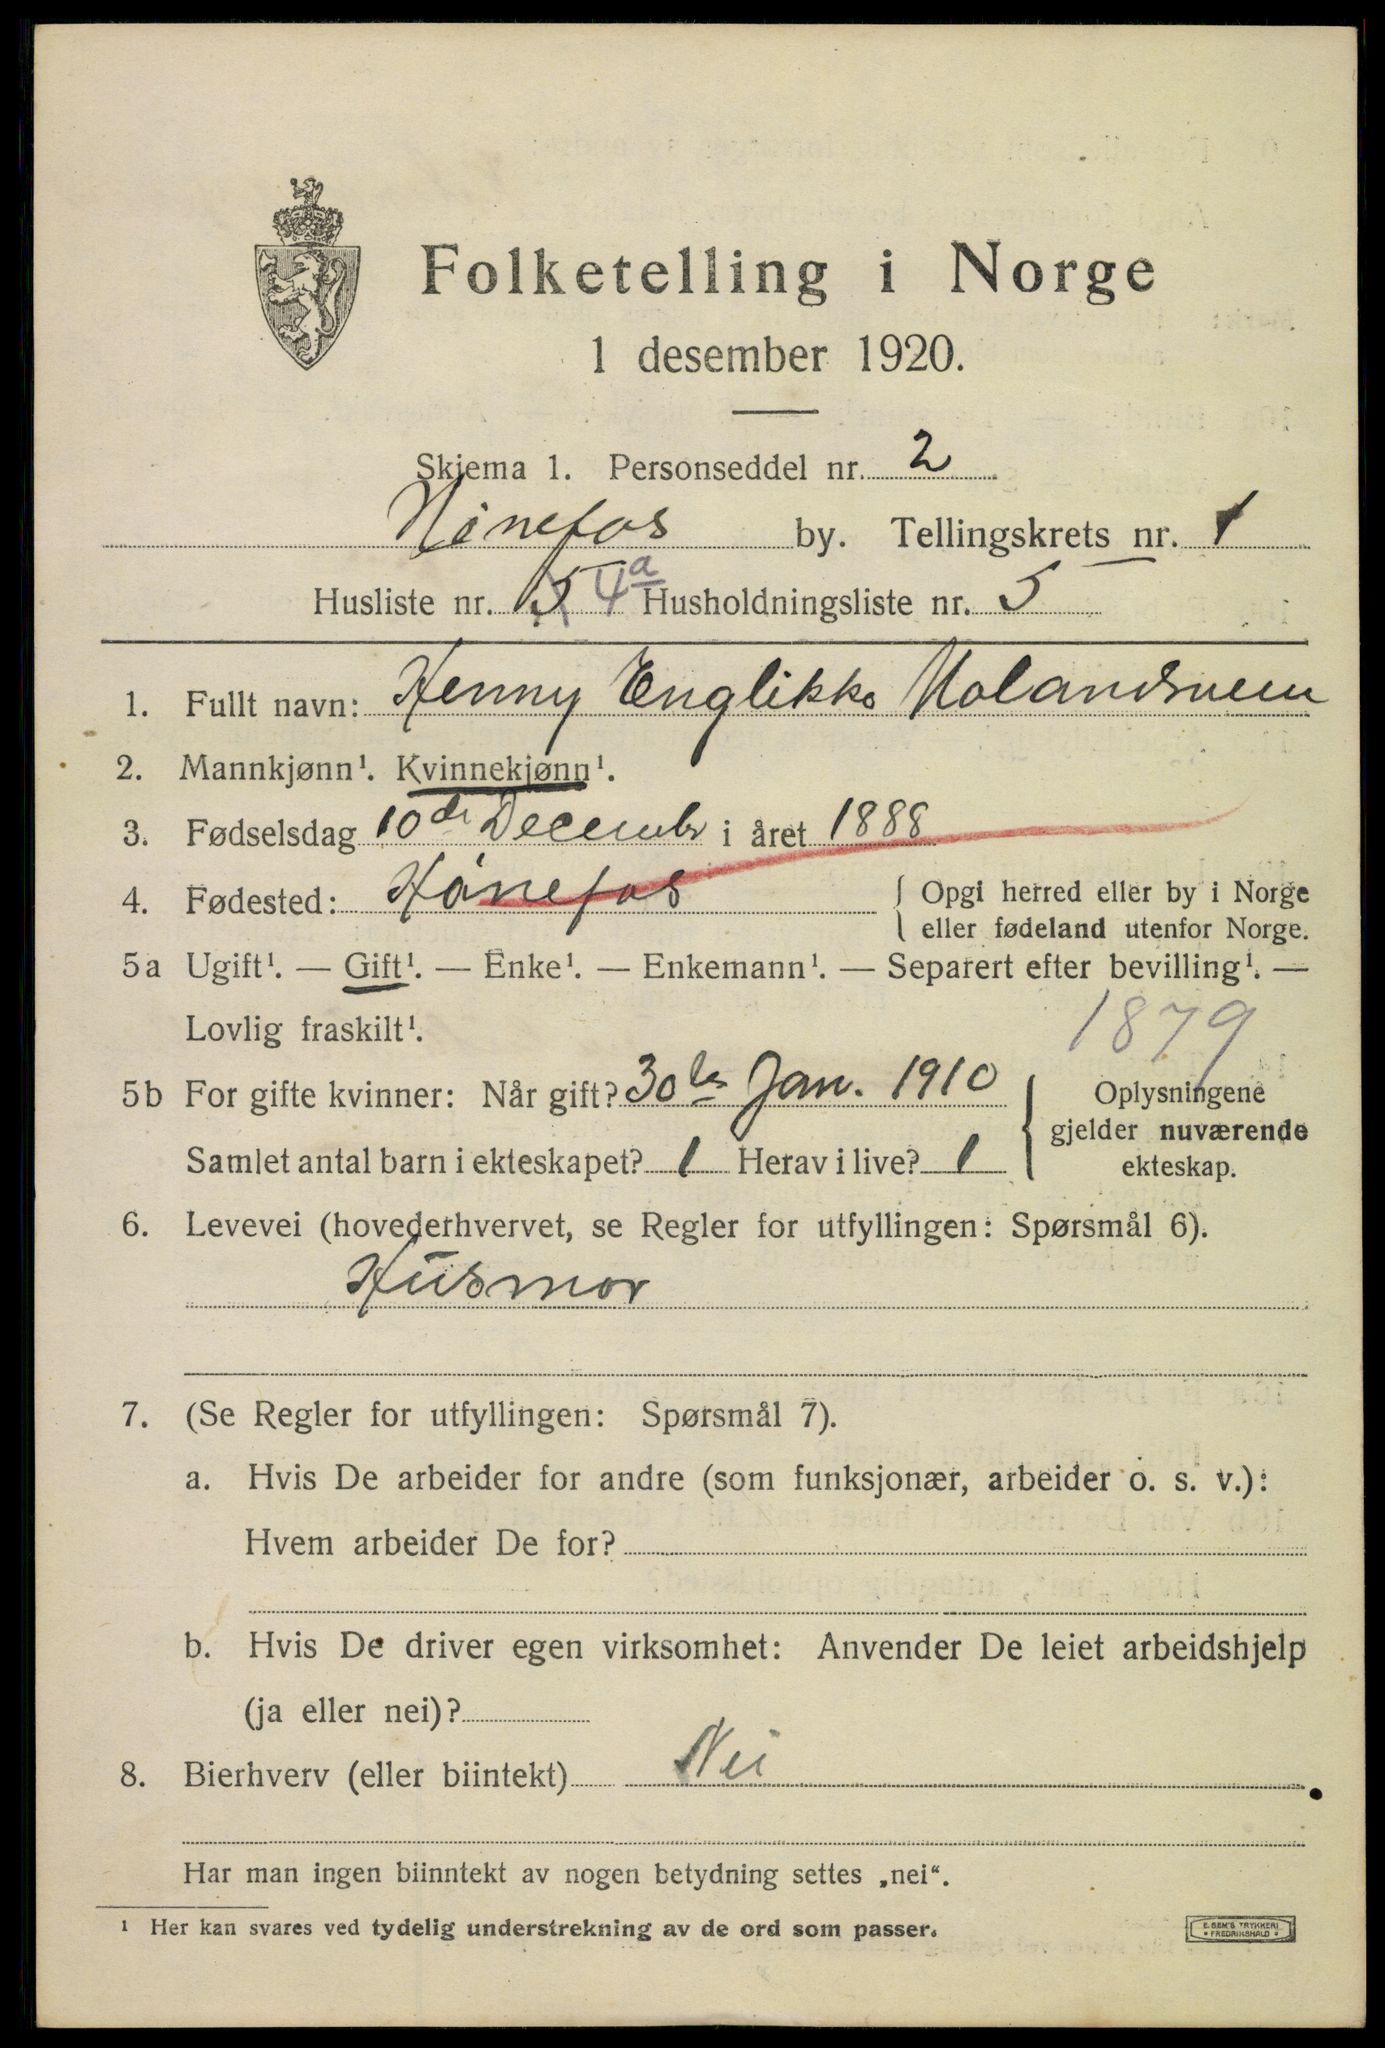 Folketelling i Norge
1 desember 1920.
Skjema 1. Personseddel nr. 2
Hønefos by. Tellingskrets nr. 1
Husliste nr. 5 4a Husholdningsliste nr. 5
1. Fullt navn: Henny Englikke
2. Mannkjønn¹. Kvinnekjønn¹.
3. Fødselsdag 10de December i året 1888
4. Fødested: Hønefos { Opgi herred eller by i Norge
eller fødeland utenfor Norge.
5a Ugift¹. — Gift¹. — Enke¹. — Enkemann¹. — Separert efter bevilling¹. —
Lovlig fraskilt¹.
1879
5b For gifte kvinner: Når gift? 30te Jan. 1910
Samlet antal barn i ekteskapet? 1 Herav i live? 1
Oplysningene
gjelder nuværende
ekteskap.
6. Levevei (hovederhvervet, se Regler for utfyllingen: Spørsmål 6).
Husmor
7. (Se Regler for utfyllingen: Spørsmål 7).
a. Hvis De arbeider for andre (som funksjonær, arbeider o. s. v.):
Hvem arbeider De for?
b. Hvis De driver egen virksomhet: Anvender De leiet arbeidshjelp
(ja eller nei)?
8. Bierhverv (eller biintekt) Nei
Har man ingen biinntekt av nogen betydning settes „nei“.
¹ Her kan svares ved tydelig understrekning av de ord som passer.
E. SEM'S TRYKKERI
• FREDRIKSHALD •